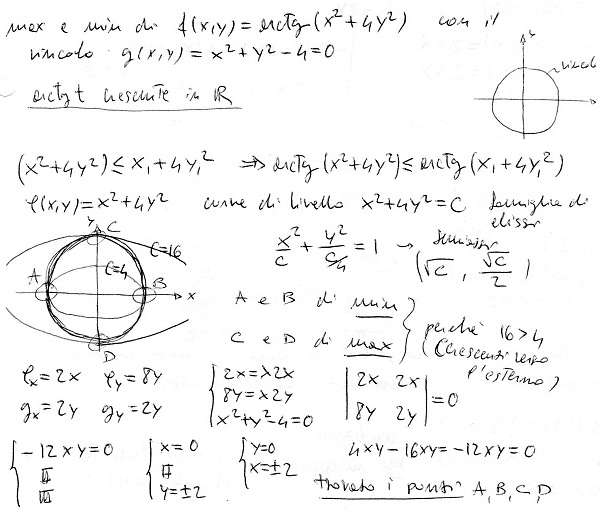 max e min di f(x,y) = arctg(x²+4y²) con il
vincolo g(x,y) = x²+y²-4=0
y
vincolo
arctg t crescente in ℝ
(x²+4y²) ≤ x₁+4y₁² ⇒ arctg(x²+4y²) ≤ arctg(x₁+4y₁²)
φ(x,y) = x²+4y² curve di livello x²+4y² = C famiglia di
ellissi
x²/C + y²/(C/4) = 1 → semiassi
(√C, √C/2)
y C
C=16
C=4
A
B
x
D
A e B di min
C e D di max
perché 16>4
(Crescenti verso
l'esterno)
φx = 2x φy = 8y
gx = 2y gy = 2y
{ 2x = λ2x
8y = λ2y
x²+y²-4=0
| 2x 2x |
| 8y 2y | = 0
4xy - 16xy = -12xy = 0
{ -12xy = 0
II
III
{ x=0
II
y=±2
{ y=0
x=±2
trovato i punti A, B, C, D